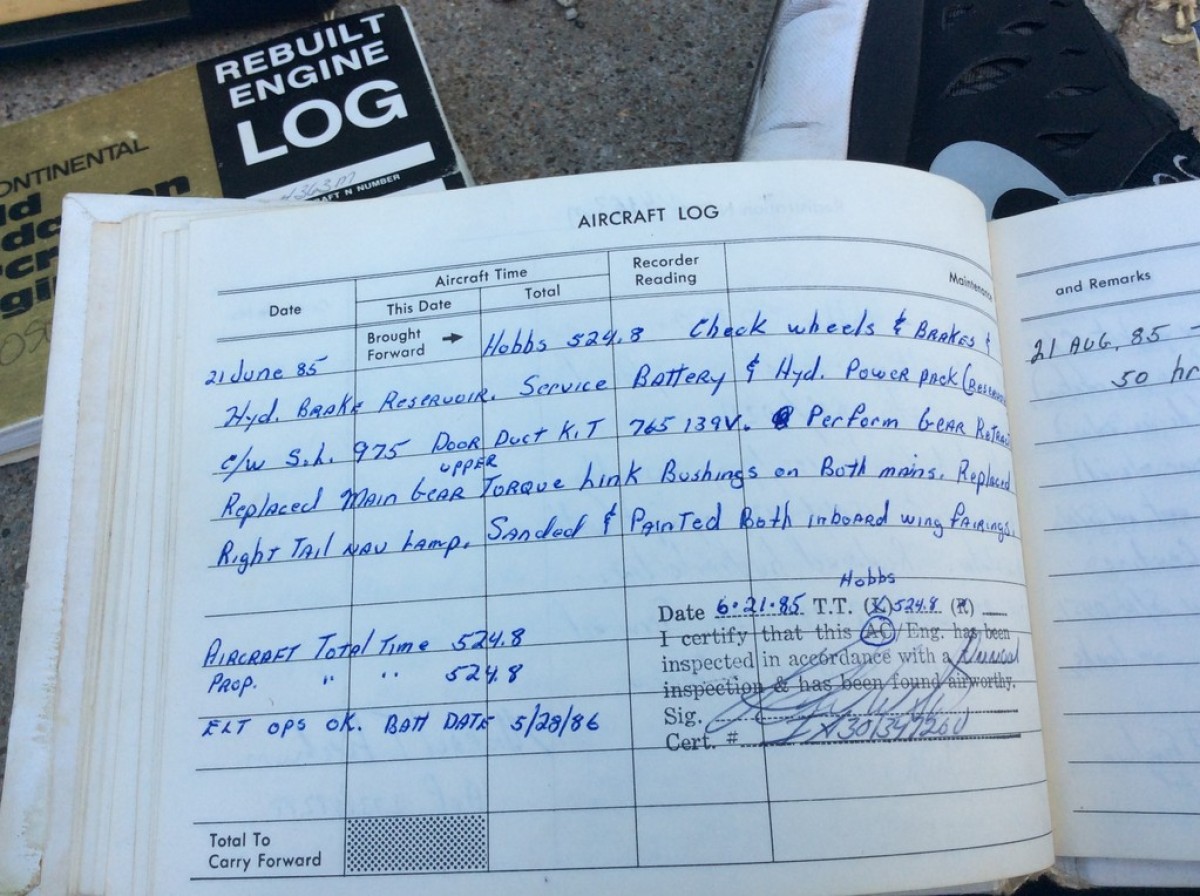 REBUILT
ENGINE
LOG
ONTINENTAL
AFT N NUMBER
AIRCRAFT LOG
Date
Aircraft Time
This Date
Total
Recorder
Reading
Brought
Forward
21 June 85 Hobbs 524.8 Check wheels & BRAKES &
Hyd. BRAKE RESERVOIR. Service BATTERY & Hyd. Power pack
c/w S.L. 975 DOOR DUCT KIT 765 139V. Perform GEAR
UPPER
Replaced MAIN GEAR TORQUE LINK Bushings on Both mains. Replaced
Right TAIL NAV LAMP. Sanded & PAINTED Both inboard wing FAIRINGS.
Hobbs
Date 6.21.85 T.T. 524.8
I certify that this AC/Eng. has been
inspected in accordance with a Annual
inspection & has been found airworthy.
Sig.
Cert. #
AIRCRAFT Total Time 524.8
PROP. " " 524.8
ELT OPS OK. BATT DATE 5/28/86
Total To
Carry Forward
and Remarks
21 AUG. 85
50 hr